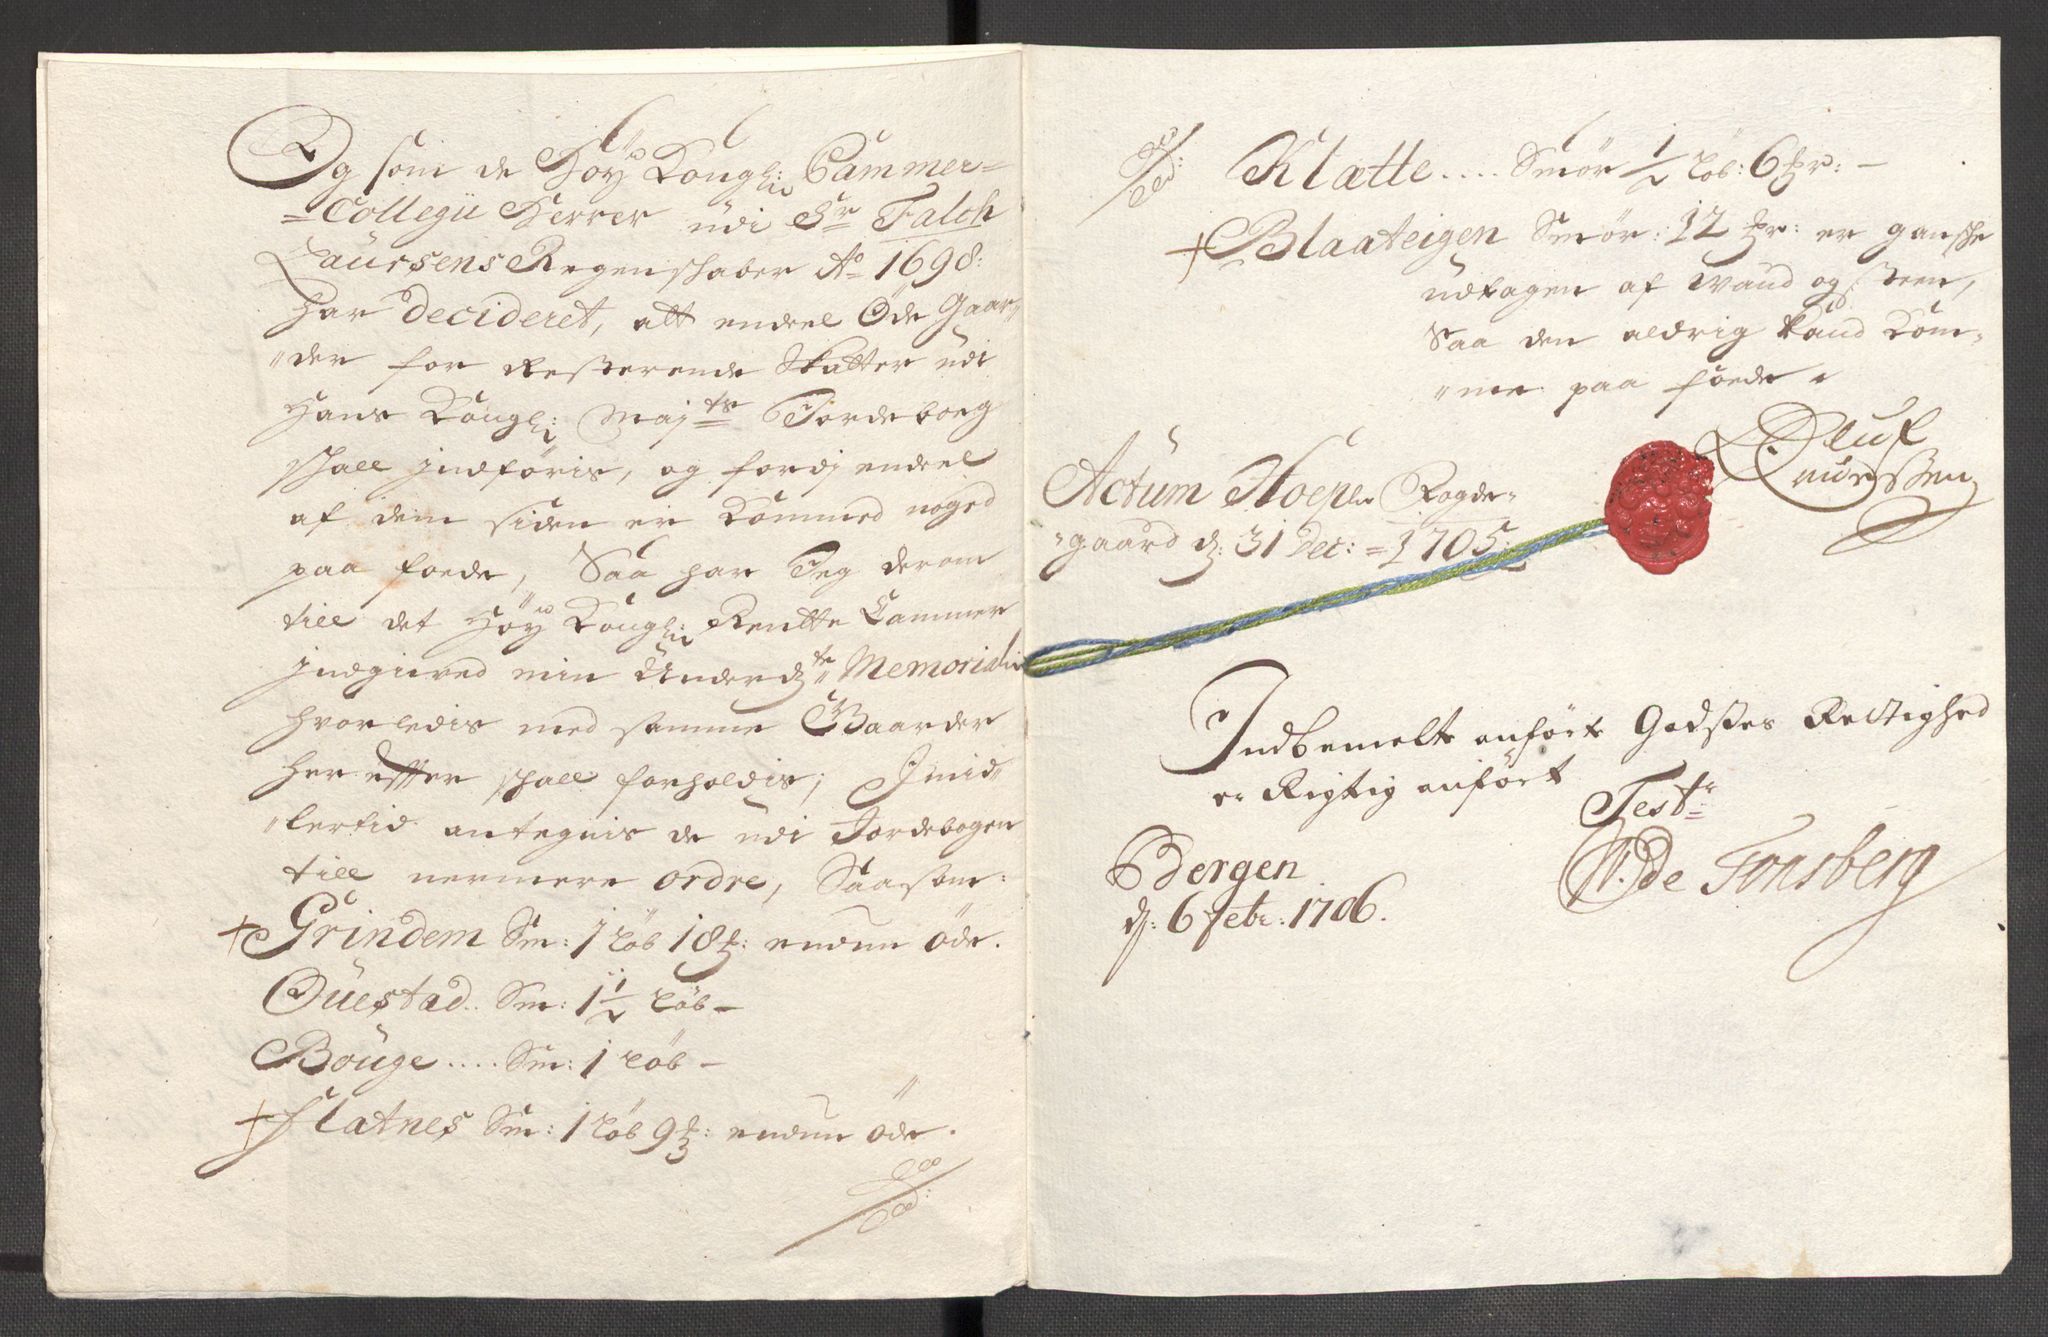 Og som de Høy Kongl: Cammer-
=Collegii Herrer udi Sr Falch
Laursens Regenschaber Ao 1698:
har decideret, att endeel Øde Gaar-
"der for Resterende Skatter udi
Hans Kongl: Majts Jordeboeg
skall indføris, og fordj endeel
af dem siden er Kommed noged
paa foede, Saa har Jeg derom
till det Høy Kongl: Rentte Cammer
indgived min Underdte Memorial
hvorledis med samme Gaarder
her effter skall forholdis; Imid-
"lertid antegnis de udi Jordebogen
till nermere ordre, Saasom:
+ Grindem Sm: 1 løb 18 ℔: endnu øde.
Ouestad.. Sm: 1 1/2 løb –
Bouge .... Sm: 1 løb –
+ Flatnes Sm: 1 løb 9 ℔: endnu øde.
Klatte .... Smør 1/2 løb: 6 ℔r: –
+ Blaateigen Smør: 12 ℔r: er gansche
udtagen af Vand og steen,
Saa den aldrig kand Kom-
"me paa foede.
Oluf
Laurssen
Actum Hoepl. Fogde-
"gaard d: 31 Dec: = 1705:
Indbemelte anførte Godsses Rettighed
er Rigtig anført
Test:
W: De Tonsberg
Bergen
d: 6 febr: 1706.